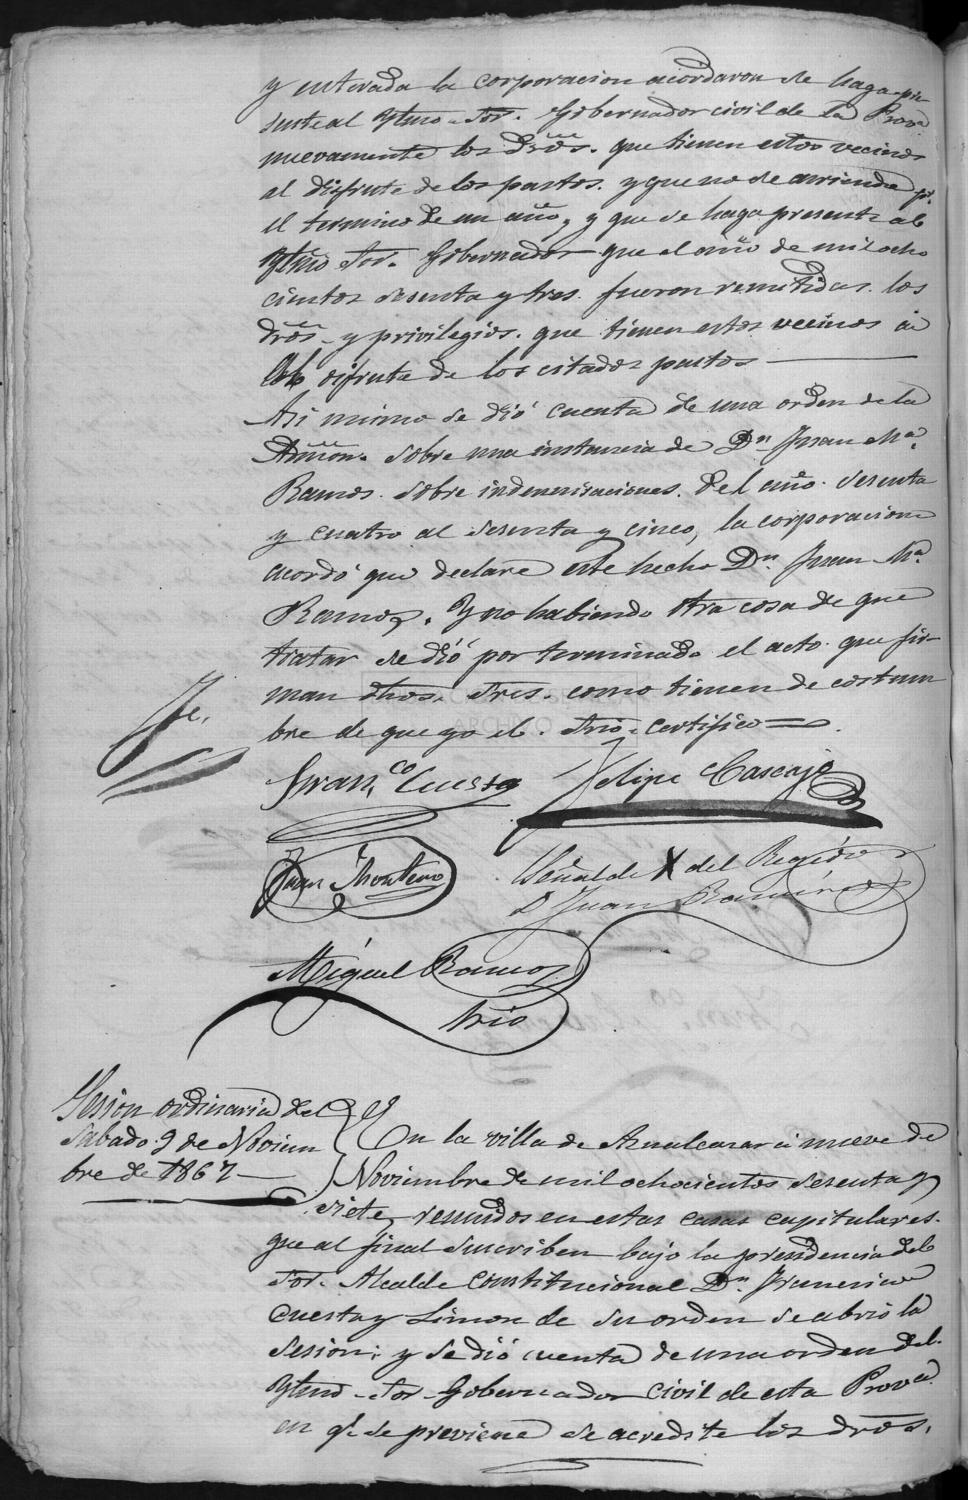 y enterada la corporacion acordaron se haga pre-
sente al Ytmo Sor. Gobernador civil de la Prova.
nuevamente los dros. que tienen estos vecinos
al disfrute de los pastos. y que no se arriende pr.
el termino de un año, y que se haga presente al
Ytmo Sor. Gobernador que el año de mil ocho
cientos sesenta y tres fueron remitidas los
dros y privilegios. que tienen estos vecinos á
disfrute de los citados pastos
Asi mismo se dió cuenta de una orden de la
Admon. sobre una instancia de Dn Juan Ma.
Ramos. sobre indemnisaciones. del año sesenta
y cuatro al sesenta y cinco, la corporacion
acordó que declare este hecho Dn. Juan Ma.
Ramos. Y no habiendo otra cosa de que
tratar se dió por terminado el acto que fir-
man dhos. Sres. como tienen de costum
bre de que yo el Srio. certifico =
Franco. Cuesta Felipe Cascajo
Juan Montero Señal de X del Regidor
D Juan Ramirez
Miguel Ramos
Srio
Sesion ordinaria del
Sabado 9 de Noviem
bre de 1867
En la villa de Aznalcazar á nueve de
Noviembre de mil ochocientos sesenta y
siete, reunidos en estas casas capitulares
que al final suscriben bajo la presidencia del
Sor. Alcalde Constitucional Dn Francisco
Cuesta y Limon de su orden se abrió la
sesion; y se dió cuenta de una orden del
Ytmo Sor Gobernador civil de esta Prova.
en qe. se previene se acredite los dros.